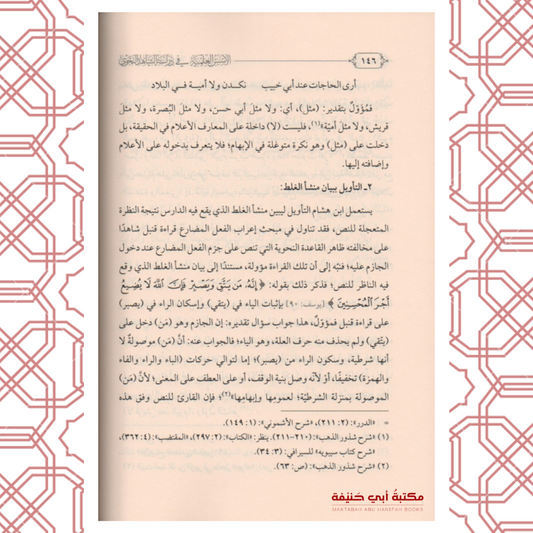 ١٤٦
الأسس العلمية في دراسة الشاهد النحوي
أرى الحاجات عند أبي خبيب نكـدن ولا أميـة فـي البلاد
فمُؤوَّلٌ بتقدير: (مثل)، أي: ولا مثلَ أبي حسن، ولا مثلَ البَصرة، ولا مثلَ
قريش، ولا مثلَ أميّة»(١)، فليست (لا) داخلة على المعارف الأعلام في الحقيقة، بل
دخلت على (مثل) وهو نكرة متوغلة في الإبهام؛ فلا يتعرف بدخوله على الأعلام
وإضافته إليها.
٢- التأويل ببيان منشأ الغلط:
يستعمل ابن هشام التأويل ليبين منشأ الغلط الذي يقع فيه الدارس نتيجة النظرة
المتعجلة للنص، فقد تناول في مبحث إعراب الفعل المضارع قراءة قنبل شاهدًا
على مخالفته ظاهر القاعدة النحوية التي تنص على جزم الفعل المضارع عند دخول
الجازم عليه؛ فنبّه إلى أن تلك القراءة مؤولة، مستندًا إلى بيان منشأ الغلط الذي وقع
فيه الناظر للنص؛ فذكر ذلك بقوله: ﴿إِنَّهُ مَن يَتَّقِي وَيَصْبِرْ فَإِنَّ اللَّهَ لَا يُضِيعُ
أَجْرَ الْمُحْسِنِينَ﴾ (يوسف: ٩٠) بإثبات الياء في (يتقي) وإسكان الراء في (يصبر)
على قراءة قنبل فمؤوَّل، هذا جواب سؤال تقديره: إن الجازم وهو (مَن) دخل على
(يتَّقي) ولم يحذف منه حرف العلة، وهو الياء؛ فالجواب عنه: أنَّ (مَن) موصولةٌ لا
أنها شرطية، وسكون الراء من (يصبر)؛ إما لتوالي حركات (الباء والراء والفاء
والهمزة) تخفيفًا، أوْ لأنّه وصل بنية الوقف، أو على العطف على المعنى؛ لأنَّ (مَن)
الموصولة بمنزلة الشرطيّة؛ لعمومها وإبهامها»(٢)؛ فإن القارئ للنص وفق هذه
= «الدرر»: (٢: ٢١١)، «شرح الأشموني»: (١: ١٤٩).
(١) «شرح شذور الذهب»: (٢١٠-٢١١). ينظر: «الكتاب»: (٢: ٢٩٧)، «المقتضب»: (٤: ٣٦٢)،
«شرح كتاب سيبويه» للسيرافي: (٣: ٣٤).
(٢) «شرح شذور الذهب»: (ص: ٦٣).
مكتبة أبي حنيفة
MAKTABAH ABU HANEFAH BOOKS